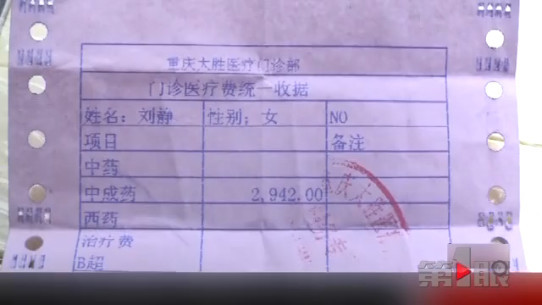 重庆大胜医疗门诊部
门诊医疗费统一收据
姓名：刘静 性别：女 NO
项目 备注
中药
中成药 2,942.00
西药
治疗费
B超
庆大胜医
第1眼